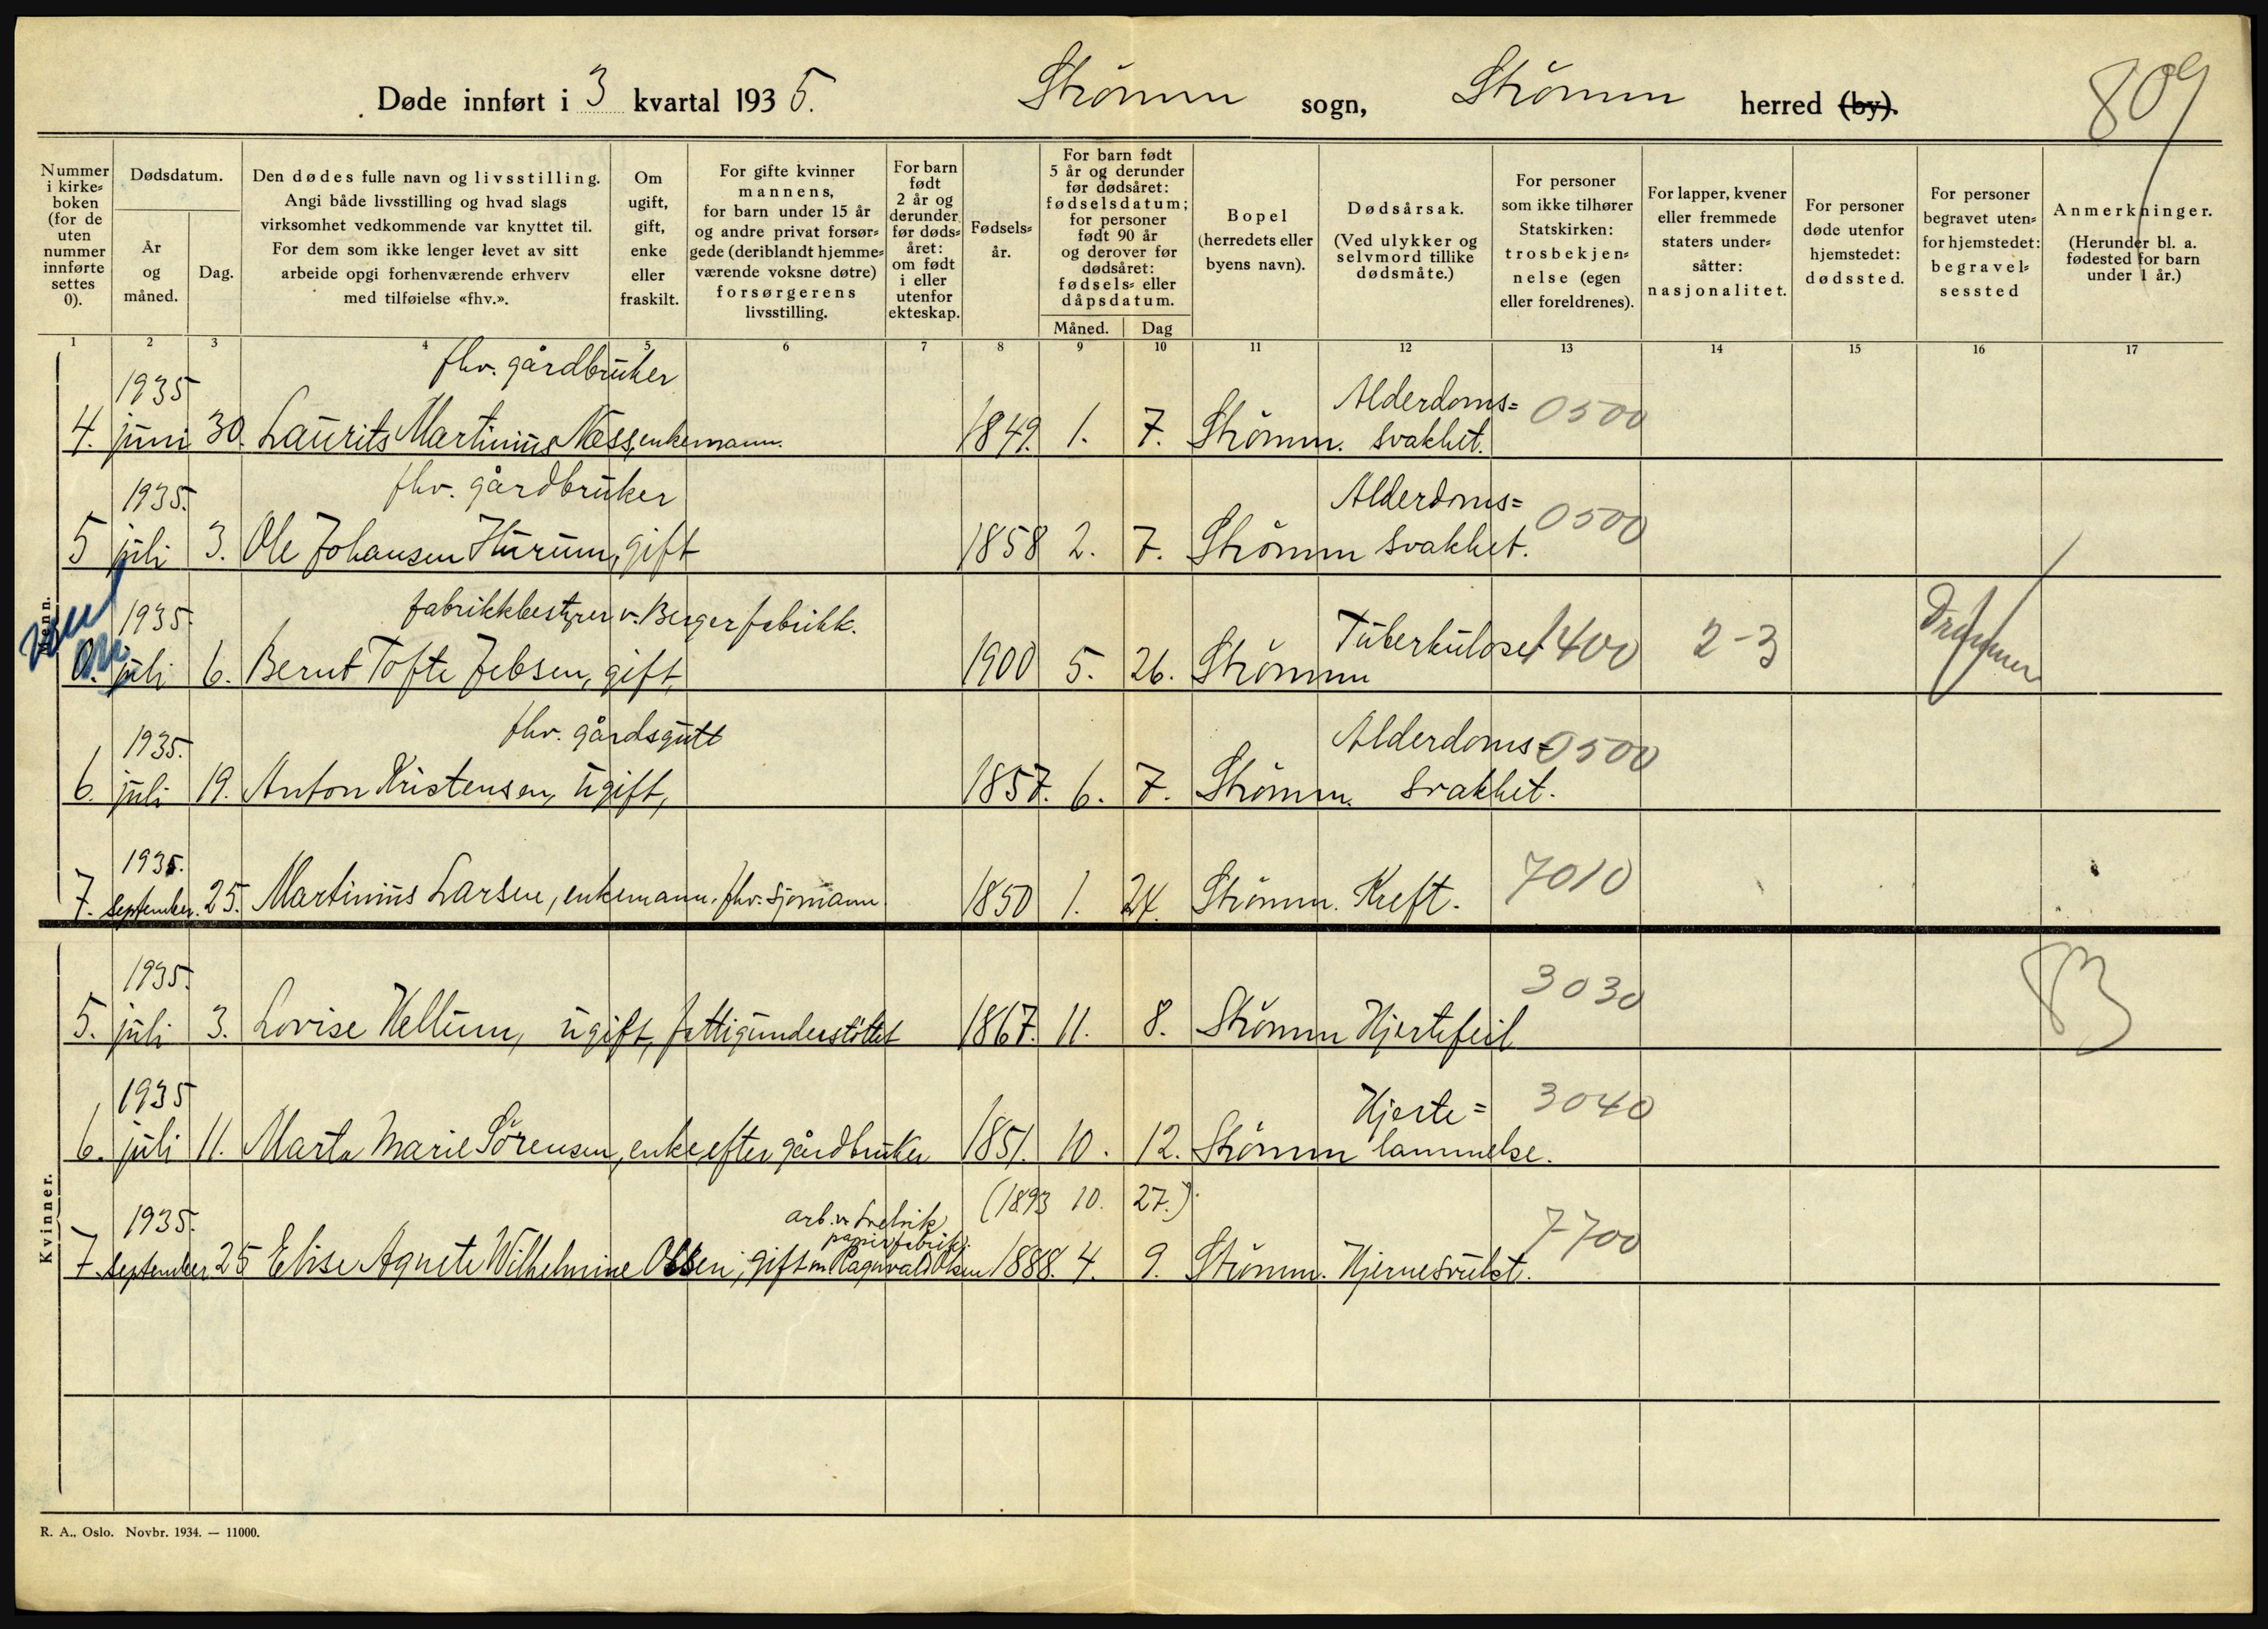 Døde innført i 3 kvartal 1935. Strömm sogn, Strömm herred (by).
809
Nummer i kirkeboken (for de uten nummer innførte settes 0).
Dødsdatum.
År og måned.
Dag.
Den dødes fulle navn og livsstilling. Angi både livsstilling og hvad slags virksomhet vedkommende var knyttet til. For dem som ikke lenger levet av sitt arbeide opgi forhenværende erhverv med tilføielse «fhv.».
Om ugift, gift, enke eller fraskilt.
For gifte kvinner mannens, for barn under 15 år og andre privat forsørgede (deriblandt hjemmeværende voksne døtre) forsørgerens livsstilling.
For barn født 2 år og derunder før dødsåret: om født i eller utenfor ekteskap.
Fødselsår.
For barn født 5 år og derunder før dødsåret: fødselsdatum; for personer født 90 år og derover før dødsåret: fødsels= eller dåpsdatum.
Måned.
Dag
Bopel (herredets eller byens navn).
Dødsårsak. (Ved ulykker og selvmord tillike dødsmåte.)
For personer som ikke tilhører Statskirken: trosbekjennelse (egen eller foreldrenes).
For lapper, kvener eller fremmede staters undersåtter: nasjonalitet.
For personer døde utenfor hjemstedet: dødssted.
For personer begravet utenfor hjemstedet: begravelsessted
Anmerkninger. (Herunder bl. a. fødested for barn under 1 år.)
1 2 3 4 5 6 7 8 9 10 11 12 13 14 15 16 17
Menn.
1935 fhv. gårdbruker Alderdoms= 0500
4. juni 30. Laurits Martinius Næss, enkemann. 1849. 1. 7. Strömm. svakhet.
1935. fhv. gårdbruker Alderdoms= 0500
5 juli 3. Ole Johansen Hurum, gift 1858 2. 7. Strömm svakhet.
1935. fabrikkbestyrer v. Berger fabrikk. Tuberkulose 1400 2-3 Drammen
0. juli 6. Bernt Tofte Jebsen, gift, 1900 5. 26. Strömm
1935. fhv. gårdsgutt Alderdoms= 0500
6. juli 19. Anton Kristensen, ugift, 1857. 6. 7. Strömm. svakhet.
1935. 7010
7. september. 25. Martinius Larsen, enkemann. fhv. sjömann 1850 1. 24. Strömm. Kreft.
Kvinner.
1935. 3030 83
5. juli 3. Lovise Hellum, ugift, fattigunderstöttet 1867. 11. 8. Strömm Hjertefeil
1935 Hjerte= 3040
6. juli 11. Marta Marie Sörensen, enke efter gårdbruker 1851. 10. 12. Strömm lammelse.
(1893 10. 27.)
1935. arb. v. papirfabrik. 7700
7 september 25 Elise Agnete Wilhelmine Olsen, gift m Ragnvald Olsen 1888. 4. 9. Strömm. Hjernesvulst.
R. A., Oslo. Novbr. 1934. — 11000.